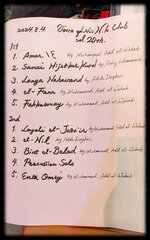 2024.8.4.
Nile Club
vol. 20
1st
1. Amar 14 by Muhammad Abd el-Wahab
2. Samai Hijazkar Kurd by
3. Longa Nahawand by
4. el-Fann by Muhammad Abd el-Wahab
5. Fakkaruny by Muhammad Abd el-Wahab
2nd
1. Layali el-Jazā'ir by Muhammad Abd el-Wahab
2. el-Nil by
3. Bint el-Balad by Muhammad Abd el-Wahab
4. Percussion Solo
5. Enta Omry by Muhammad Abd el-Wahab